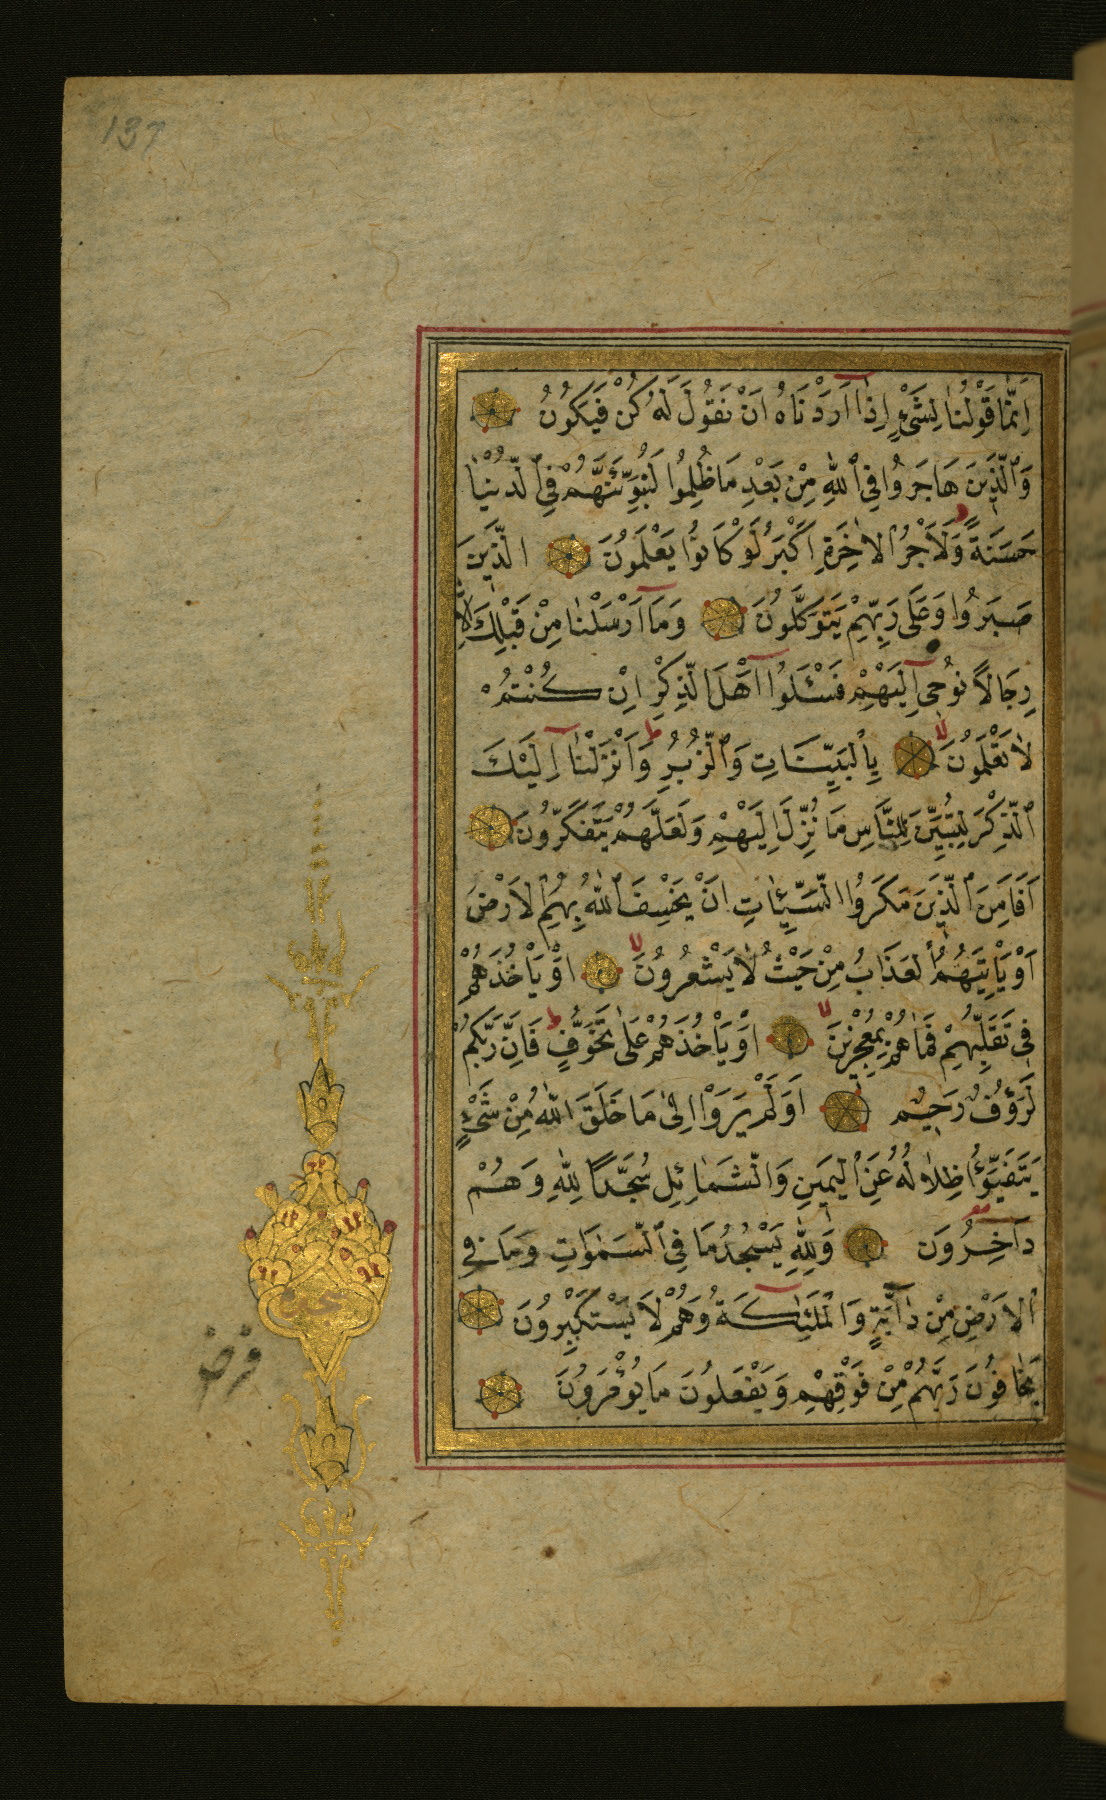 137
اِنَّمَا قَوْلُنَا لِشَیْءٍ اِذَٓا اَرَدْنَاهُ اَنْ نَقُولَ لَهُ كُنْ فَيَكُونُ
وَالَّذِينَ هَاجَرُوا فِي اللّٰهِ مِنْ بَعْدِ مَا ظُلِمُوا لَنُبَوِّئَنَّهُمْ فِي الدُّنْيَا
حَسَنَةً وَلَاَجْرُ الْاٰخِرَةِ اَكْبَرُ لَوْ كَانُوا يَعْلَمُونَ الَّذِينَ
صَبَرُوا وَعَلٰى رَبِّهِمْ يَتَوَكَّلُونَ وَمَٓا اَرْسَلْنَا مِنْ قَبْلِكَ اِلَّا
رِجَالًا نُوحِٓي اِلَيْهِمْ فَسْـَٔلُٓوا اَهْلَ الذِّكْرِ اِنْ كُنْتُمْ
لَا تَعْلَمُونَ بِالْبَيِّنَاتِ وَالزُّبُرِ وَاَنْزَلْنَٓا اِلَيْكَ
الذِّكْرَ لِتُبَيِّنَ لِلنَّاسِ مَا نُزِّلَ اِلَيْهِمْ وَلَعَلَّهُمْ يَتَفَكَّرُونَ
اَفَاَمِنَ الَّذِينَ مَكَرُوا السَّيِّـَٔاتِ اَنْ يَخْسِفَ اللّٰهُ بِهِمُ الْاَرْضَ
اَوْ يَاْتِيَهُمُ الْعَذَابُ مِنْ حَيْثُ لَا يَشْعُرُونَ اَوْ يَاْخُذَهُمْ
فِي تَقَلُّبِهِمْ فَمَا هُمْ بِمُعْجِزِينَ اَوْ يَاْخُذَهُمْ عَلٰى تَخَوُّفٍ فَاِنَّ رَبَّكُمْ
لَرَؤُفٌ رَحِيمٌ اَوَلَمْ يَرَوْا اِلٰى مَا خَلَقَ اللّٰهُ مِنْ شَیْءٍ
يَتَفَيَّؤُا ظِلَالُهُ عَنِ الْيَمِينِ وَالشَّمَٓائِلِ سُجَّدًا لِلّٰهِ وَهُمْ
دَاخِرُونَ وَلِلّٰهِ يَسْجُدُ مَا فِي السَّمٰوَاتِ وَمَا فِي
الْاَرْضِ مِنْ دَٓابَّةٍ وَالْمَلٰٓئِكَةُ وَهُمْ لَا يَسْتَكْبِرُونَ
يَخَافُونَ رَبَّهُمْ مِنْ فَوْقِهِمْ وَيَفْعَلُونَ مَا يُؤْمَرُونَ